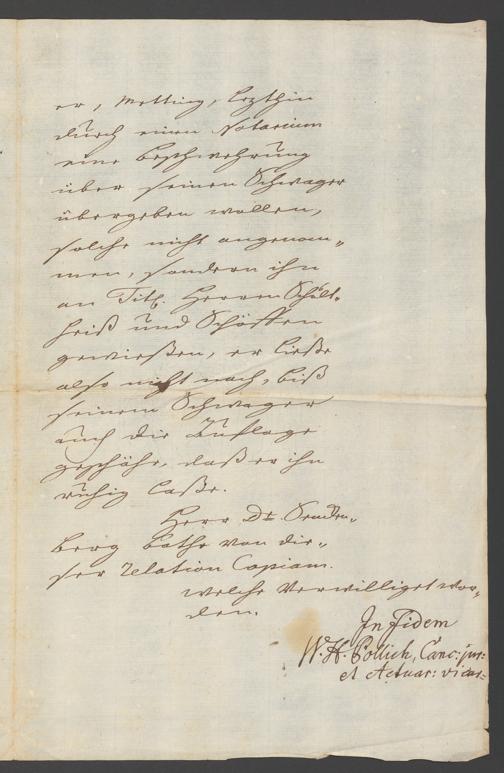 er, Metting, lezthin
durch einen Notarium
eine beschwehrung
über seinen Schwager
übergeben wollen,
solche nicht angenom„
men, sondern ihn
an Titl. Herren Schult„
heiß und Schöffen
gewießen, er ließe
also nicht nach, biß
seinem Schwager
auch die Auflage
geschähe, daß er ihn
ruhig laße.
Herr Dr. Sencken„
berg bathe von die„
ser relation Copiam.
welche verwilliget wor„
den.
In fidem
W. H. Pollich, Canc: jur:
et Actuar: vicar: